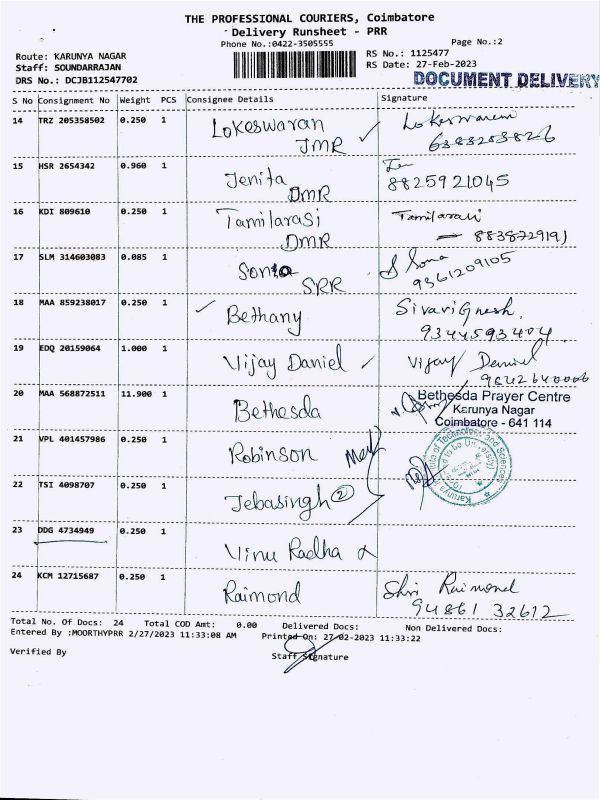 THE PROFESSIONAL COURIERS, Coimbatore
Delivery Runsheet - PRR
Phone No.:0422-3505555
Page No.:2
Route: KARUNYA NAGAR
RS No.: 1125477
Staff: SOUNDARRAJAN
RS Date: 27-Feb-2023
DRS No.: DCJB112547702
DOCUMENT DELIVERY
S No Consignment No Weight PCS Consignee Details Signature
14 TRZ 205358502 0.250 1 Lokeswaran Lokeswaran
JMR 6383253826
15 HSR 2654342 0.960 1 Jenita
DMR 8825921045
16 KDI 809610 0.250 1 Tamilarasi Tamilarasi
DMR 8838729191
17 SLM 314603083 0.085 1 Sonia S Sona
SRR 9361209105
18 MAA 859238017 0.250 1 Bethany Sivavignesh.
9344593404
19 EDQ 20159064 1.000 1 Vijay Daniel Vijay Daniel
9842640006
20 MAA 568872511 11.900 1 Bethesda
Bethesda Prayer Centre
Karunya Nagar
Coimbatore - 641 114
21 VPL 401457986 0.250 1 Robinson
Karunya Institute of Technology and Sciences
22 TSI 4098707 0.250 1 Jebasingh 2
23 DDG 4734949 0.250 1 Vinu Radha
24 KCM 12715687 0.250 1 Raimond Shri Raimond
94861 32612
Total No. Of Docs: 24 Total COD Amt: 0.00 Delivered Docs: Non Delivered Docs:
Entered By :MOORTHYPRR 2/27/2023 11:33:08 AM Printed On: 27-02-2023 11:33:22
Verified By
Staff Signature